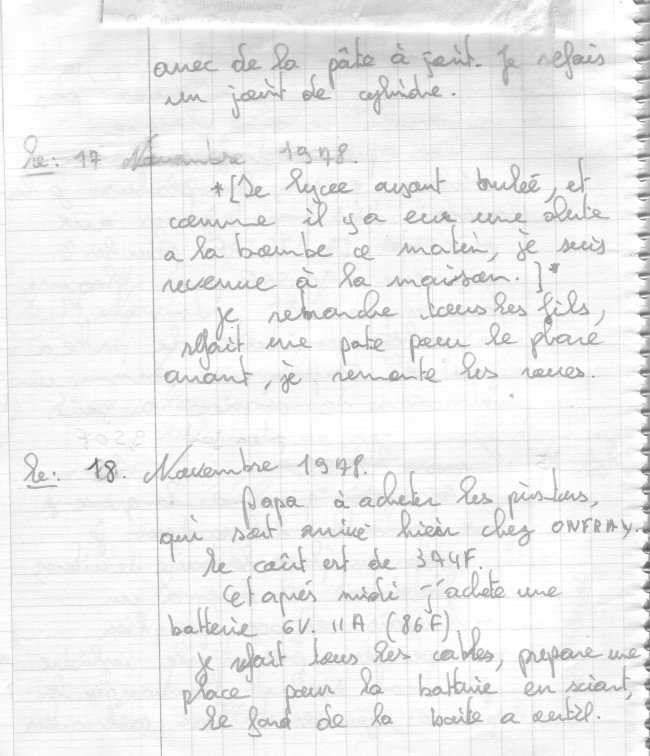 avec de la pâte à joint. Je refais
un joint de cylindre.
le: 17 Novembre 1978.
*[Le lycee ayant brulée, et
comme il y a eur une alute
a la bombe ce matin, je suis
revenue à la maison.]*
je rebranche tous les fils,
refait une pate pour le phare
avant, je remonte les roues.
le: 18. Novembre 1978.
Papa à acheter les pistons,
qui sont arrivé hier chez ONFRAY.
le coût est de 374F.
Cet aprés midi j'achete une
batterie 6V. 11A (86F)
je refait tous les cables, prepare une
place pour la batterie en sciant,
le fond de la boite a outil.